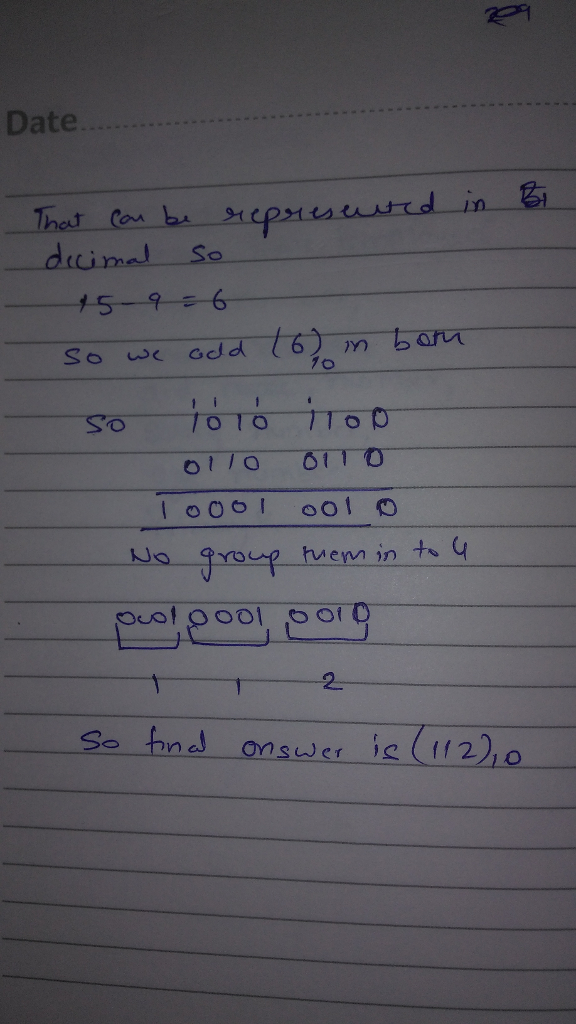 209
Date
That can be represented in Bi
decimal so
15-9 = 6
so we add (6)10 in both
so 1010 1100
0110 0110
10001 0010
No group them in to 4
0001 0001 0010
1 1 2
So final answer is (112)10